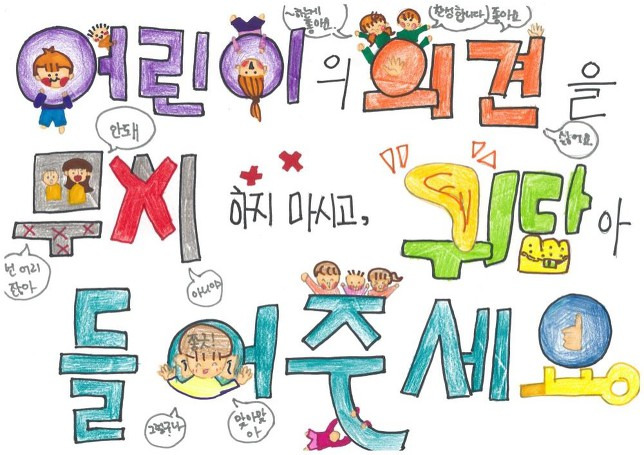 ~하는게
좋아요.
찬성합니다
좋아요
어린이의 의견을
싫어요
안돼
무시하지 마시고, 귀담아
넌 어리
잖아
아니야
들어주세요
그렇구나
맞아맞
아